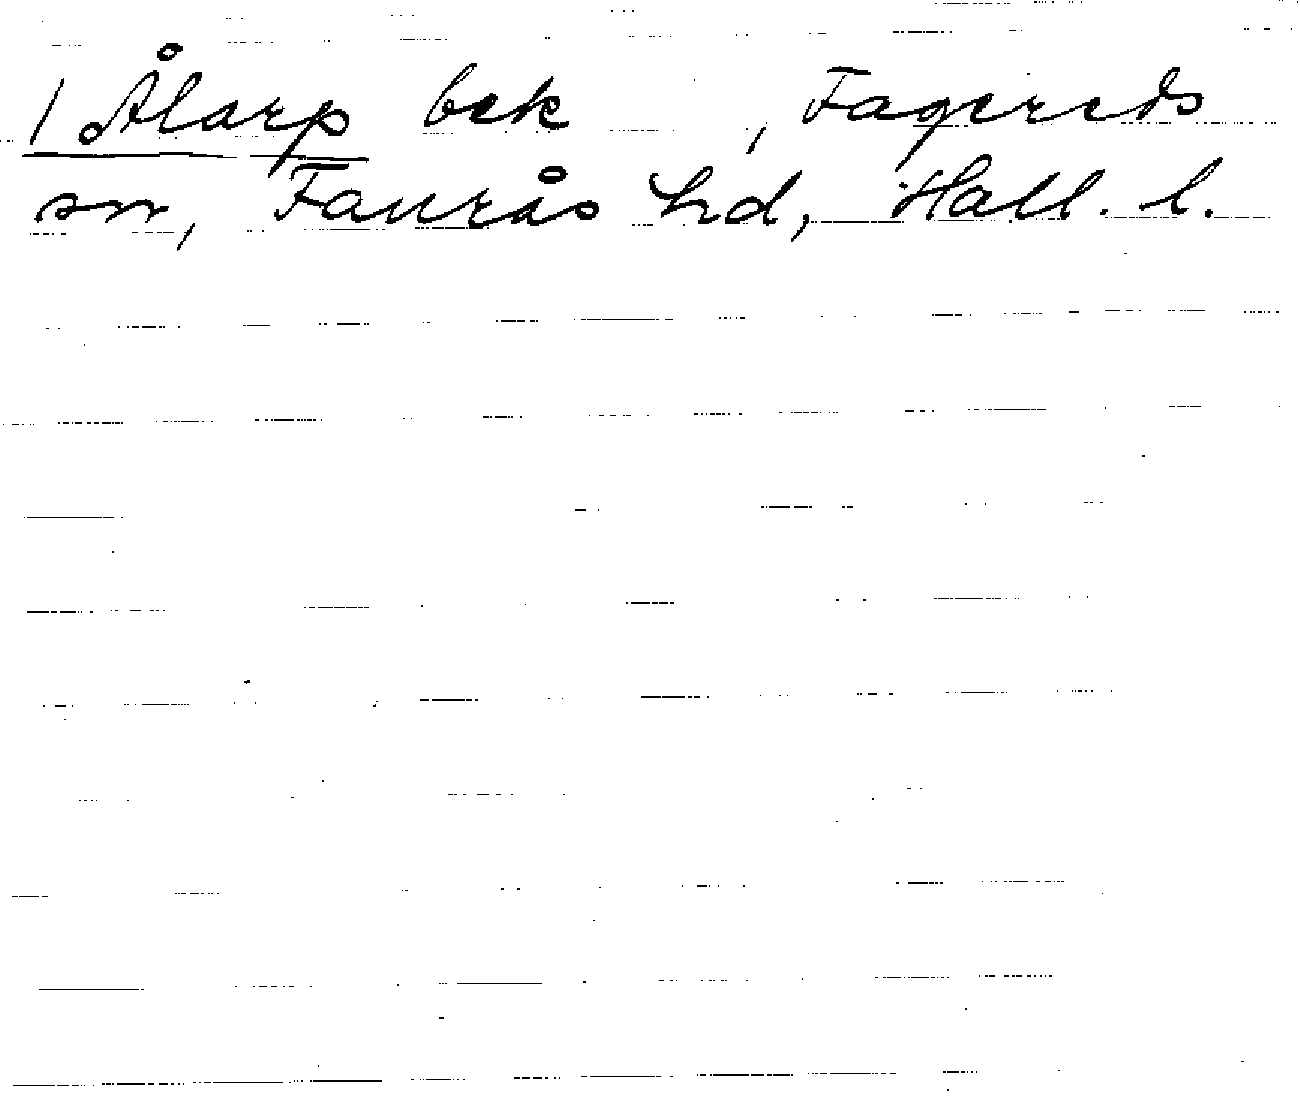 / Ålarp bek , Fagereds
sn, Faurås hd, Hall. l.